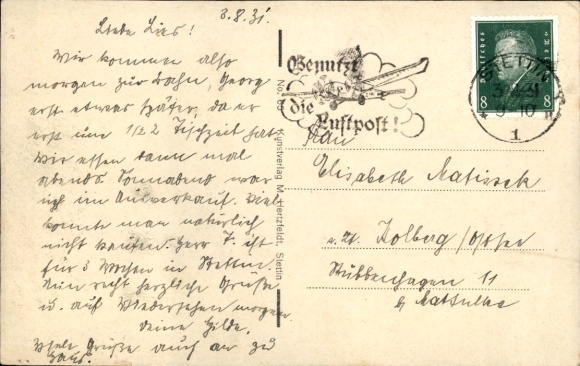 3.8.31.
Liebe Lies!
Wir kommen also
morgen zur Bahn, Georg
erst etwas später, da er
erst um 1/2 2 Tischzeit hat.
Wir essen dann mal
abends. Sonnabend war
ich im Ausverkauf. Viel
konnte man natürlich
nicht kaufen. Herr F. ist
für 3 Wochen in Stettin.
Nun recht herzliche Grüße
u. auf Wiedersehen morgen
Deine Hilde.
Viele Grüße auch an
Haus.
No.
Kunstverlag M. Hertzfeldt, Stettin
Benutzt
die
Luftpost!
STETTIN
3.8.31
9-10
1
Deutsches Reich
8 8
Frau
Elisabeth Matissek
z. Zt. Kolberg/Ostsee
Stubbenhagen 11
b/ Mattulke